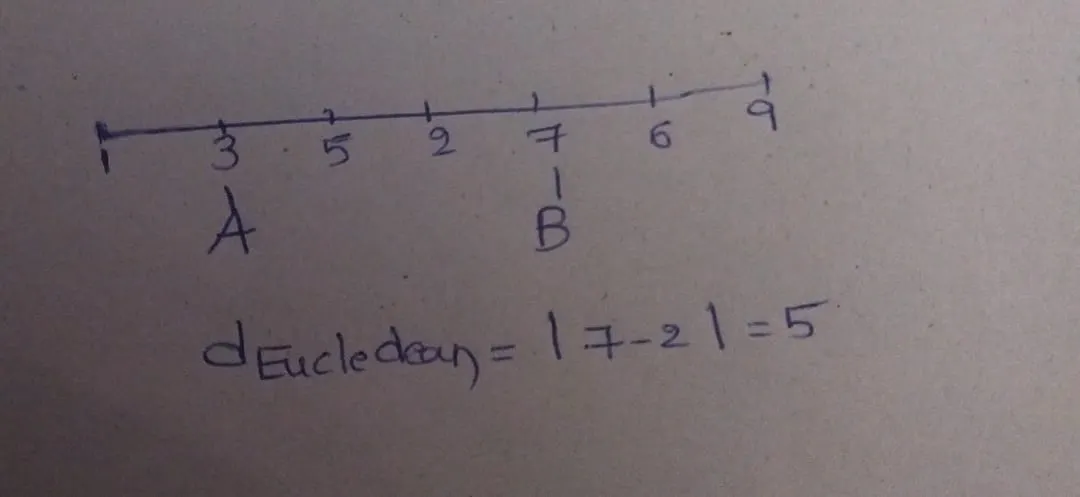 1 3 5 2 7 6 9
A B
d Eucledean = | 7 - 2 | = 5